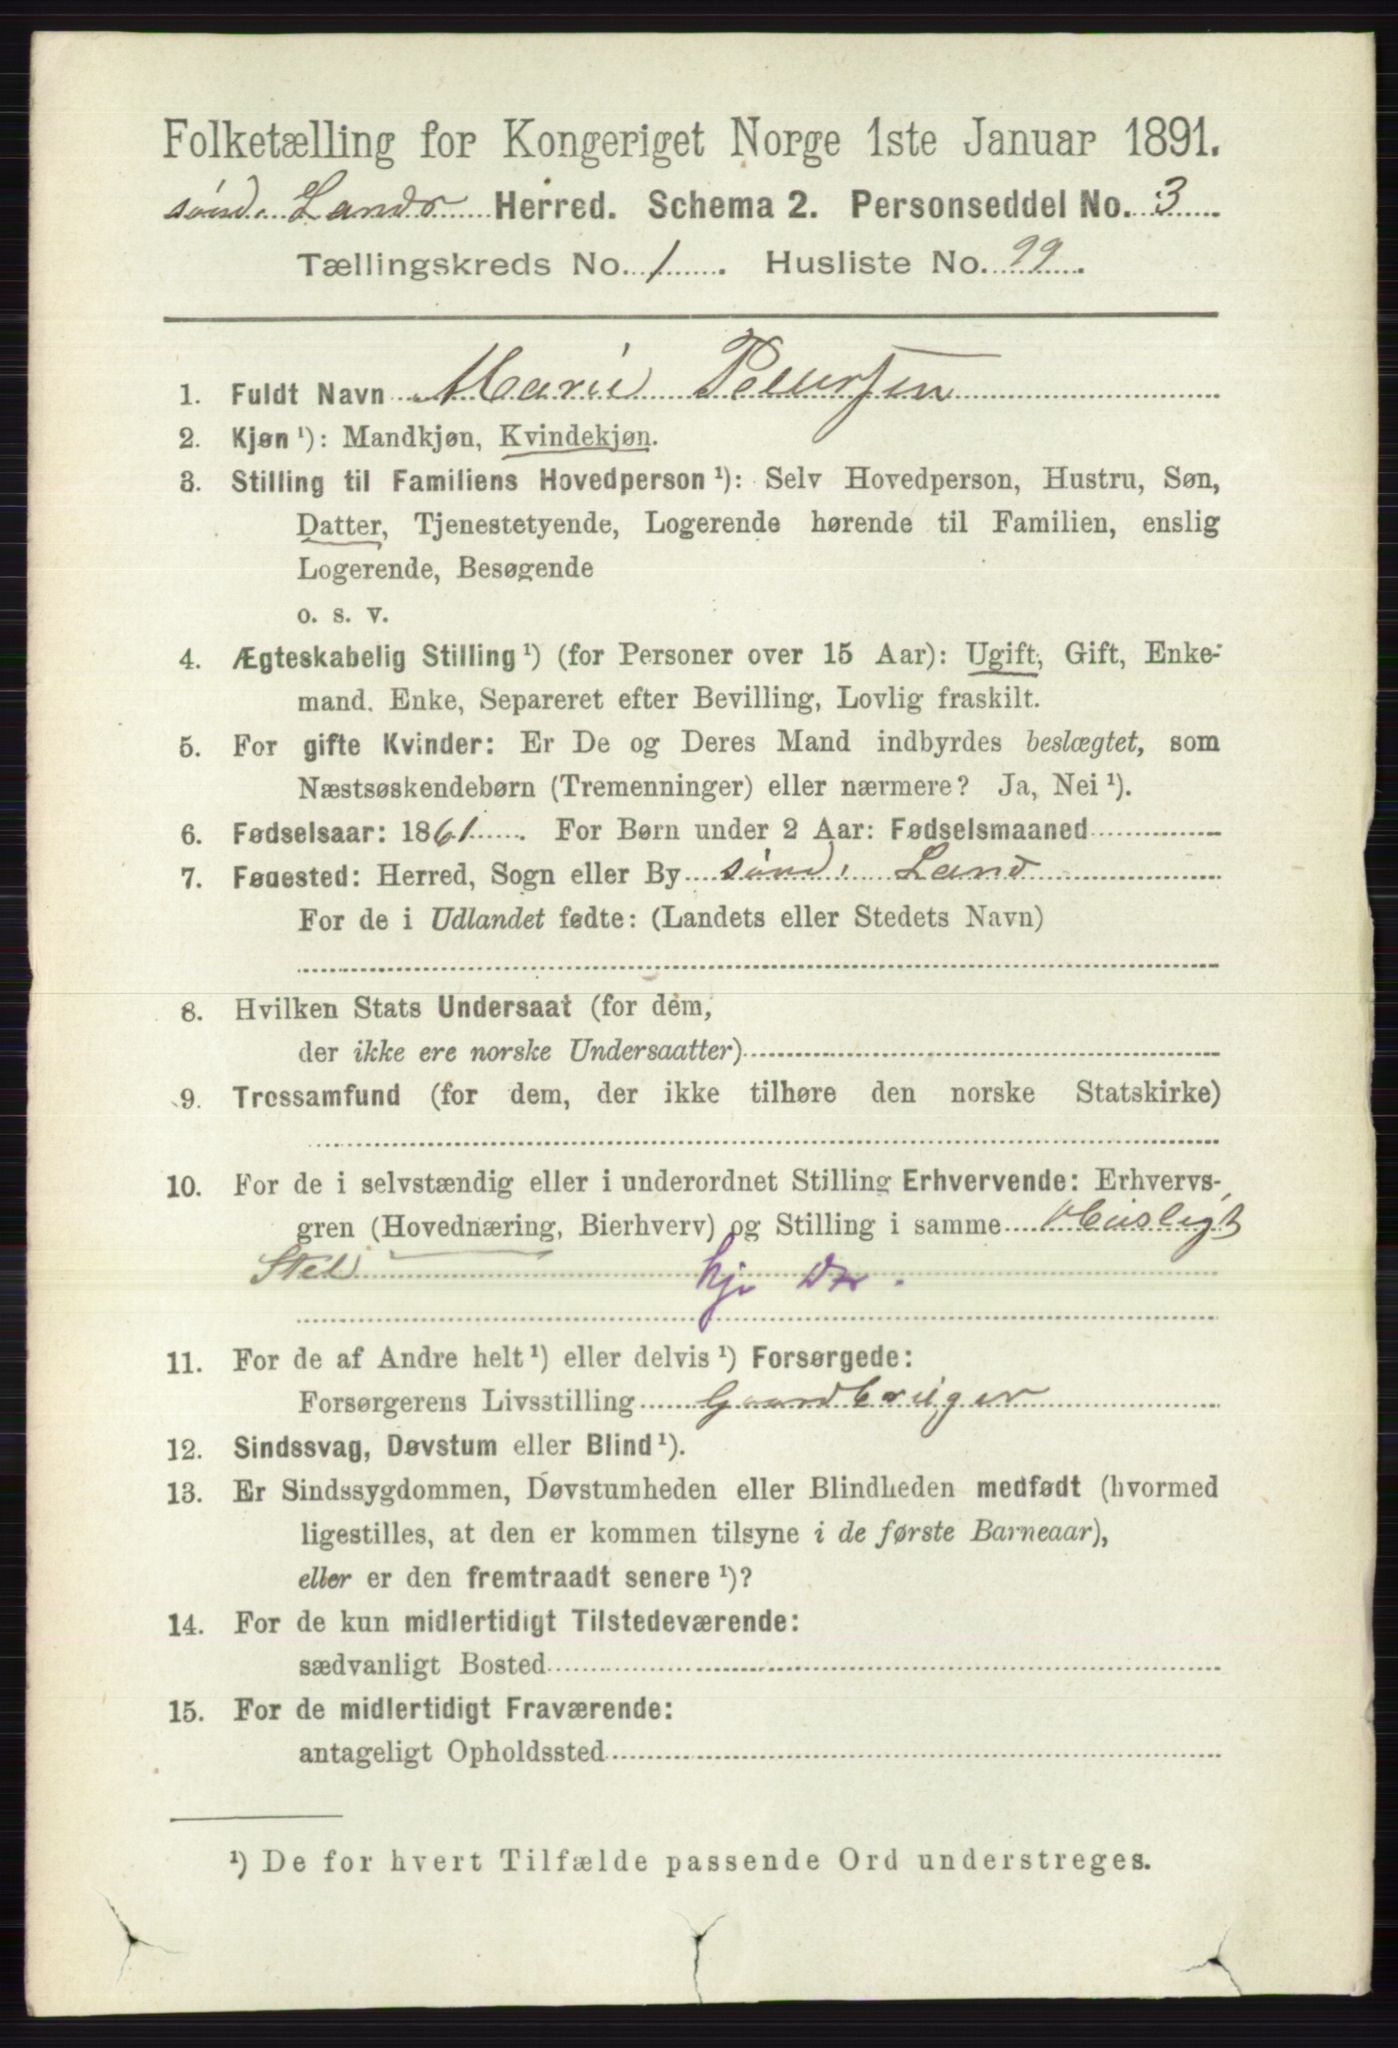 Folketælling for Kongeriget Norge 1ste Januar 1891.
sønd. Lands Herred. Schema 2. Personseddel No. 3
Tællingskreds No. 1. Husliste No. 99.
1. Fuldt Navn Marie Pettersen
2. Kjøn ¹): Mandkjøn, Kvindekjøn.
3. Stilling til Familiens Hovedperson ¹): Selv Hovedperson, Hustru, Søn,
Datter, Tjenestetyende, Logerende hørende til Familien, enslig
Logerende, Besøgende
o. s. v.
4. Ægteskabelig Stilling ¹) (for Personer over 15 Aar): Ugift, Gift, Enke-
mand. Enke, Separeret efter Bevilling, Lovlig fraskilt.
5. For gifte Kvinder: Er De og Deres Mand indbyrdes beslægtet, som
Næstsøskendebørn (Tremenninger) eller nærmere? Ja, Nei ¹).
6. Fødselsaar: 1861. For Børn under 2 Aar: Fødselsmaaned
7. Føuested: Herred, Sogn eller By sønd. Land
For de i Udlandet fødte: (Landets eller Stedets Navn)
8. Hvilken Stats Undersaat (for dem,
der ikke ere norske Undersaatter)
9. Trossamfund (for dem, der ikke tilhøre den norske Statskirke)
10. For de i selvstændig eller i underordnet Stilling Erhvervende: Erhvervs-
gren (Hovednæring, Bierhverv) og Stilling i samme Husligt
Stel hj. Dr.
11. For de af Andre helt ¹) eller delvis ¹) Forsørgede:
Forsørgerens Livsstilling Gaardbruger
12. Sindssvag, Døvstum eller Blind ¹).
13. Er Sindssygdommen, Døvstumheden eller Blindheden medfødt (hvormed
ligestilles, at den er kommen tilsyne i de første Barneaar),
eller er den fremtraadt senere ¹)?
14. For de kun midlertidigt Tilstedeværende:
sædvanligt Bosted
15. For de midlertidigt Fraværende:
antageligt Opholdssted
¹) De for hvert Tilfælde passende Ord understreges.